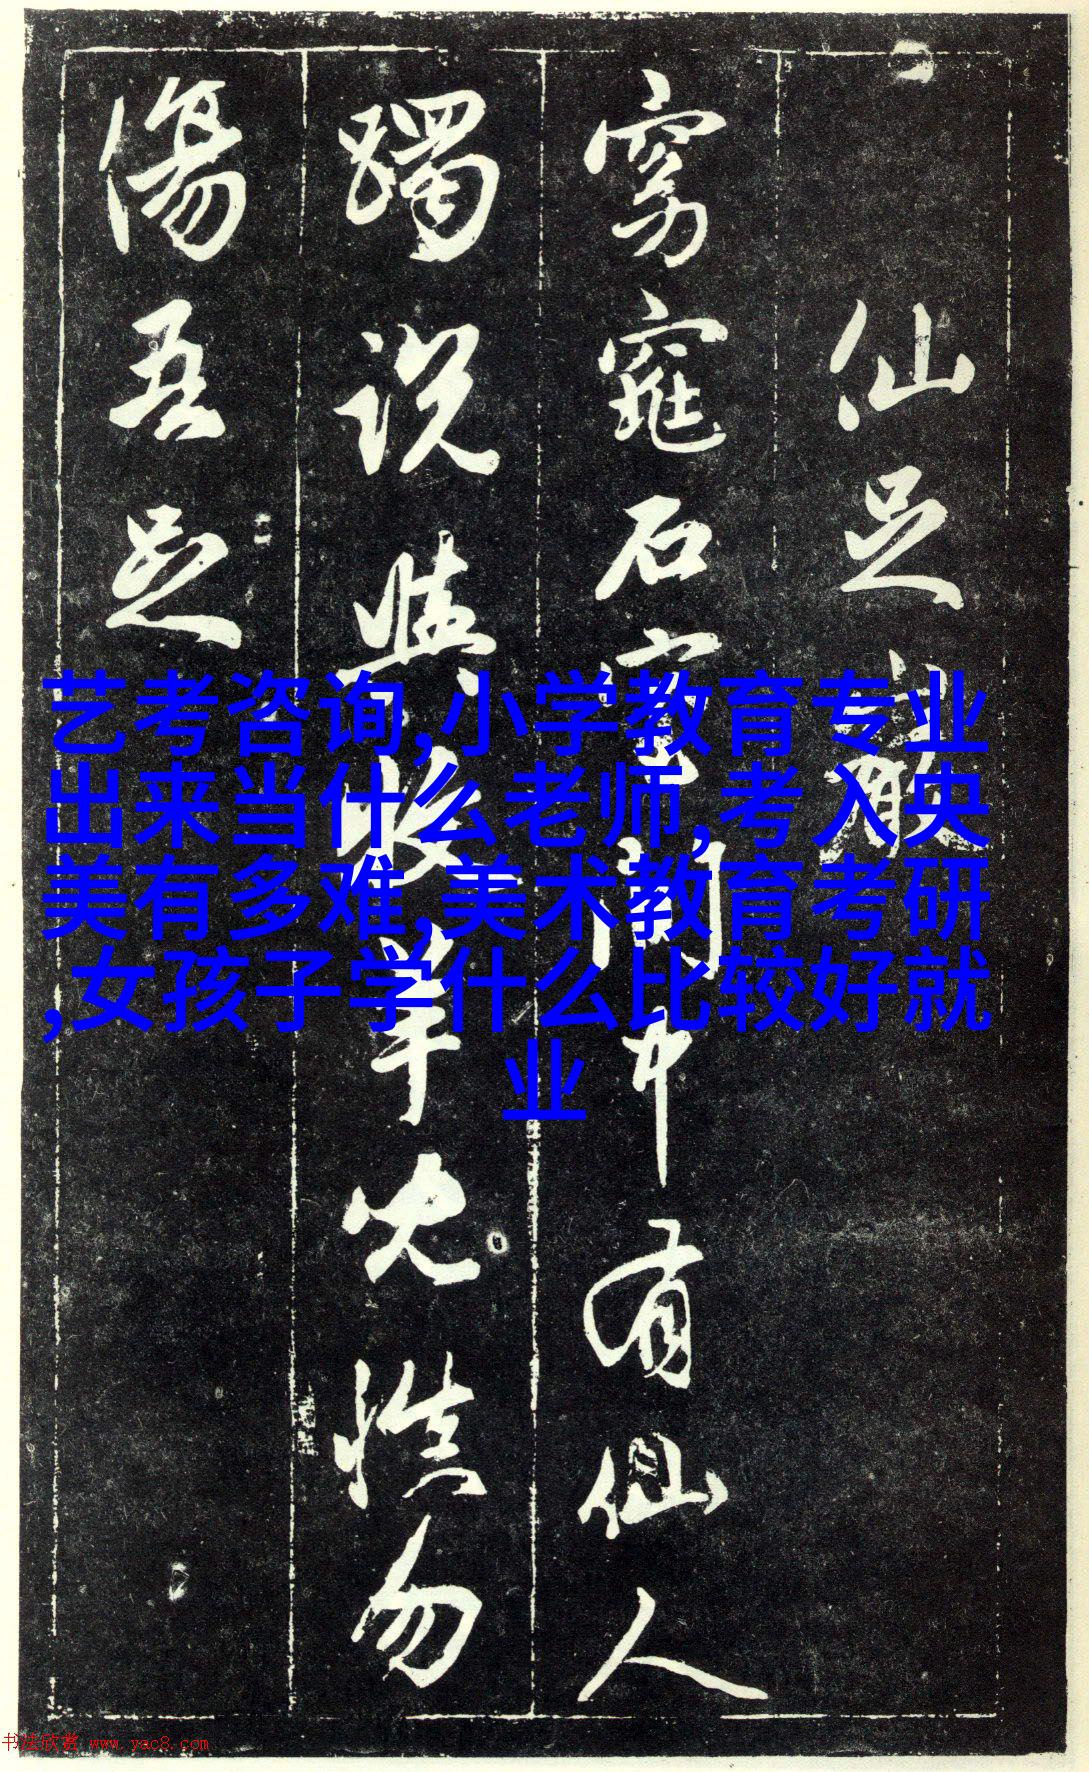 仙足巖
窈窕石室間中有仙人
躅説與牧羊児慎勿
傷吾足
艺考咨询,小学教育专业
出来当什么老师,考入央
美有多难,美术教育考研
,女孩子学什么比较好就
业
书法欣赏 www.yac8.com